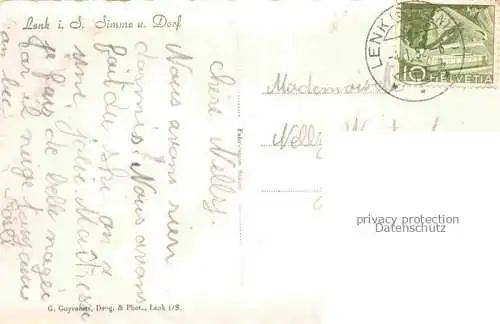 Lenk i. S. Simme u. Dorf
chère Nelly.
Nous avons rien
d'armis! Nous avons
fait du ski on a
une jolie Maîtresse
Je fais de belle nager
Car il neige toujours
au bec
Mademois
Nelly
LENK
10
HELVETIA
privacy protection
Datenschutz
G. Goyvaerts, Drog. & Phot., Lenk i/S.